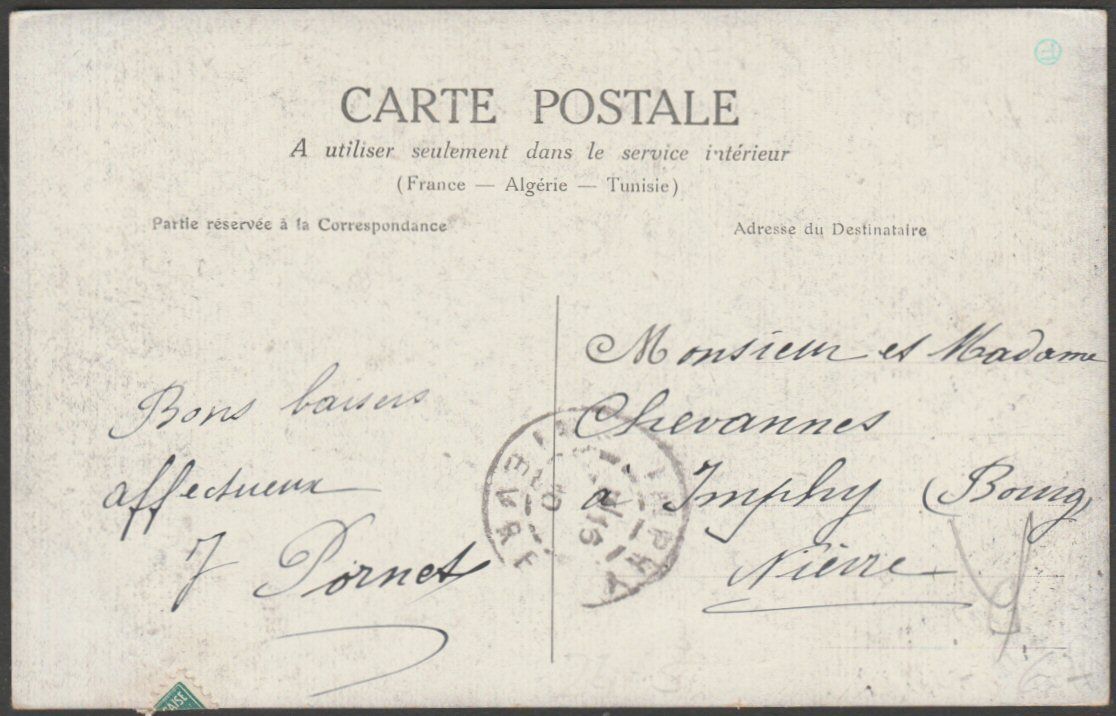 CARTE POSTALE
A utiliser seulement dans le service intérieur
(France — Algérie — Tunisie)
Partie réservée à la Correspondance
Adresse du Destinataire
Bons baisers
affectueux
J Pornet
Monsieur et Madame
Chevannes
a Imphy (Bourg)
Nièvre
IMPHY
NIEVRE
AISE